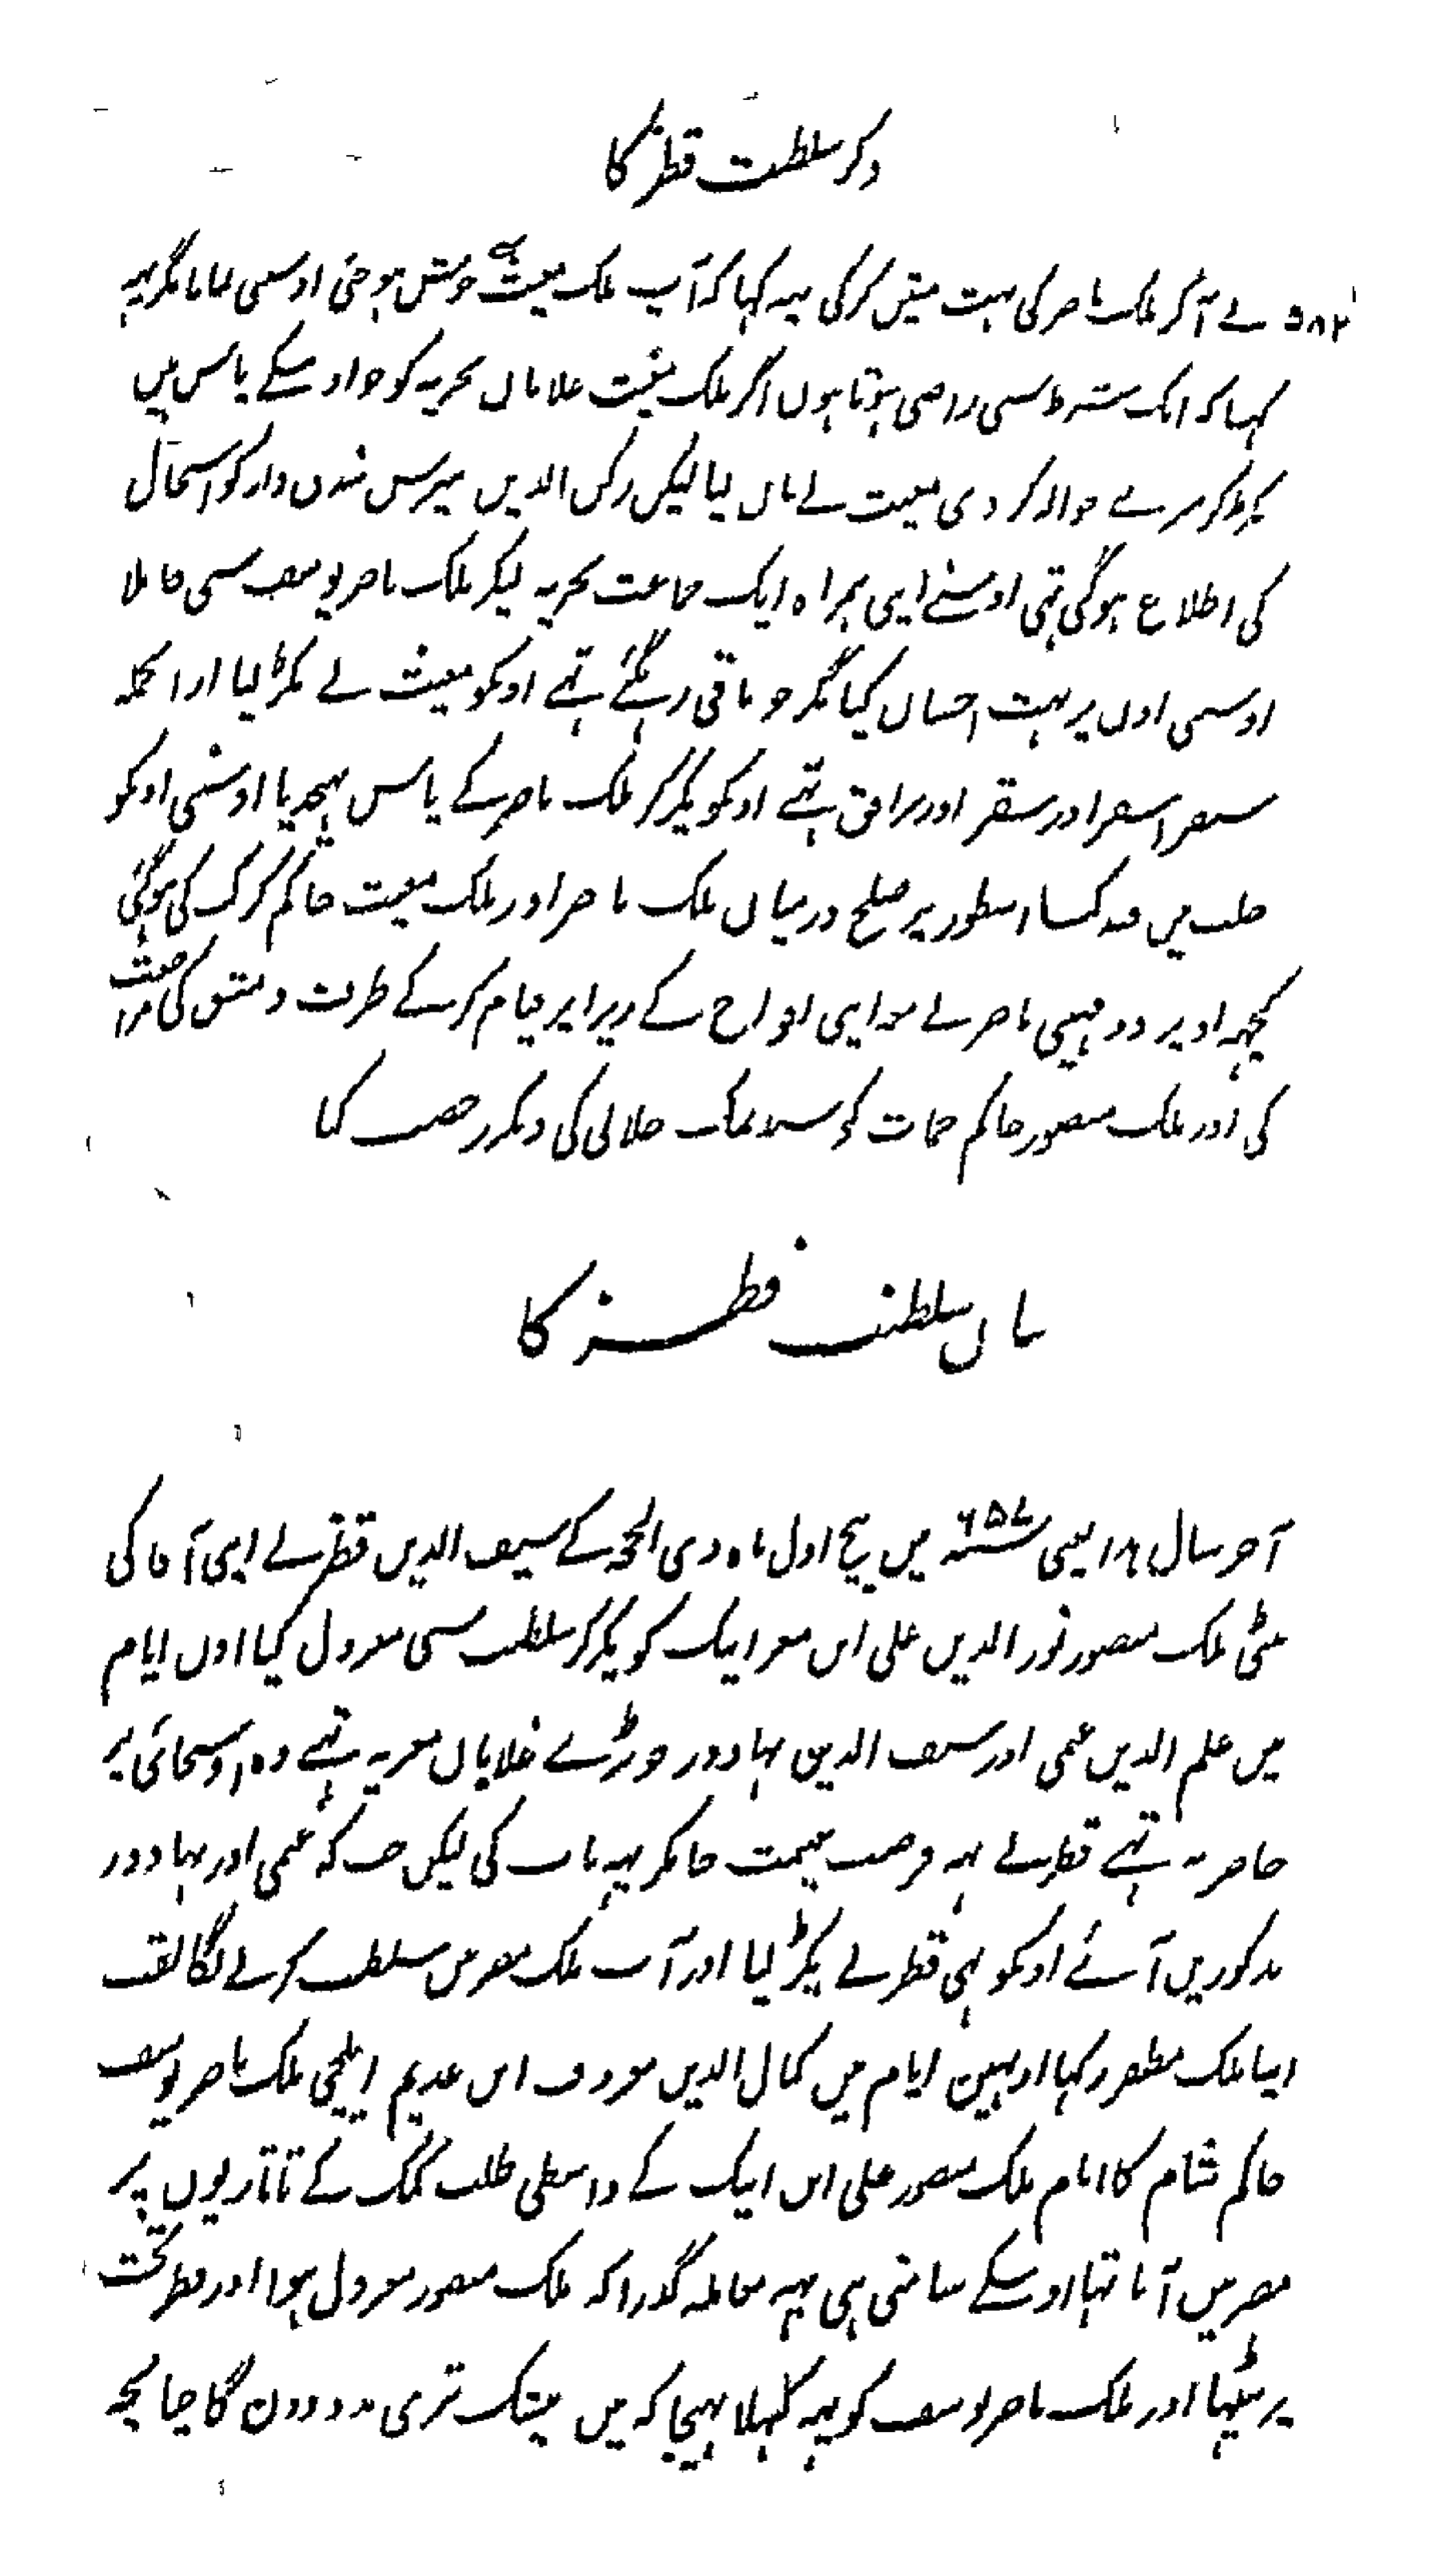 ذکر سلطنت قطز کا
نے آکر ملک ناصر کی بہت منتیں کرکی یہہ کہا کہ آپ ملک مغیث سے خوش ہوجئی اوسسی نمانا مگر یہہ
کہا کہ ایک شرط سسی راضی ہوتا ہوں اگر ملک مغیث غلامان بحریہ کو جو اوسکے پاس ہیں
پکڑکر میرے حوالہ کر دی مغیث نے مان لیا لیکن رکن الدین بیبرس بندق دار کو اسحال
کی اطلاع ہوگئی تہی اوسنے اپنی ہمراہ ایک جماعت بحریہ لیکر ملک ناصر یوسف سسی جا ملا
اوسسی اون پر بہت احسان کیا مگر جو باقی رہگئے تہے اونکو مغیث نے پکڑ لیا ازانجملہ
سنقر اشقر اور سقر اور برامق تہے اونکو پکڑکر ملک ناصر کے پاس بہیجدیا اوسنی اونکو
حلب میں قید کیا اسطور پر صلح درمیان ملک ناصر اور ملک مغیث حاکم کرک کی ہوگئی
کچہہ اوپر دو مہینی ناصر نے معہ اپنی افواج کے زیرا پر قیام کرکے طرف دمشق کی مراجعت
کی اور ملک منصور حاکم حمات کو سند نمک حلالی کی دیکر رخصت کیا
بیان سلطنت قطز کا
آخر سال ہذا یعنی ۶۵۷ میں بیچ اول ماہ ذی الحجہ کے سیف الدین قطز نے اپنی آقا کی
بیٹی ملک منصور نور الدین علی ابن معز ایبک کو پکڑکر سلطنت سسی معزول کیا اون ایام
میں علم الدین غتمی اور سیف الدین بہادور جو بڑے غلامان معزیہ تہے وہ اوسجائی پر
حاضر نہ تہے قطز نے یہہ فرصت غنیمت جانکر یہہ بات کی لیکن جب کہ غتمی اور بہادور
مذکورین آئے اونکو بہی قطز نے پکڑ لیا اور آپ ملک مصر میں سلطنت کرنے لگا لقب
اپنا ملک مظفر رکہا اونہین ایام میں کمال الدین معروف ابن عدیم ایلچی ملک ناصر یوسف
حاکم شام کا بنام ملک منصور علی ابن ایبک کے واسطی طلب کمک کے تاتاریوں پر
مصر میں آنا تہا اوسکے سامنی ہی یہہ معاملہ گذرا کہ ملک منصور معزول ہوا اور قطز تخت
پر بیٹہا اور ملک ناصر یوسف کو یہہ کہلا بہیجا کہ میں بیشک تیری مدد دون گا چنانچہ